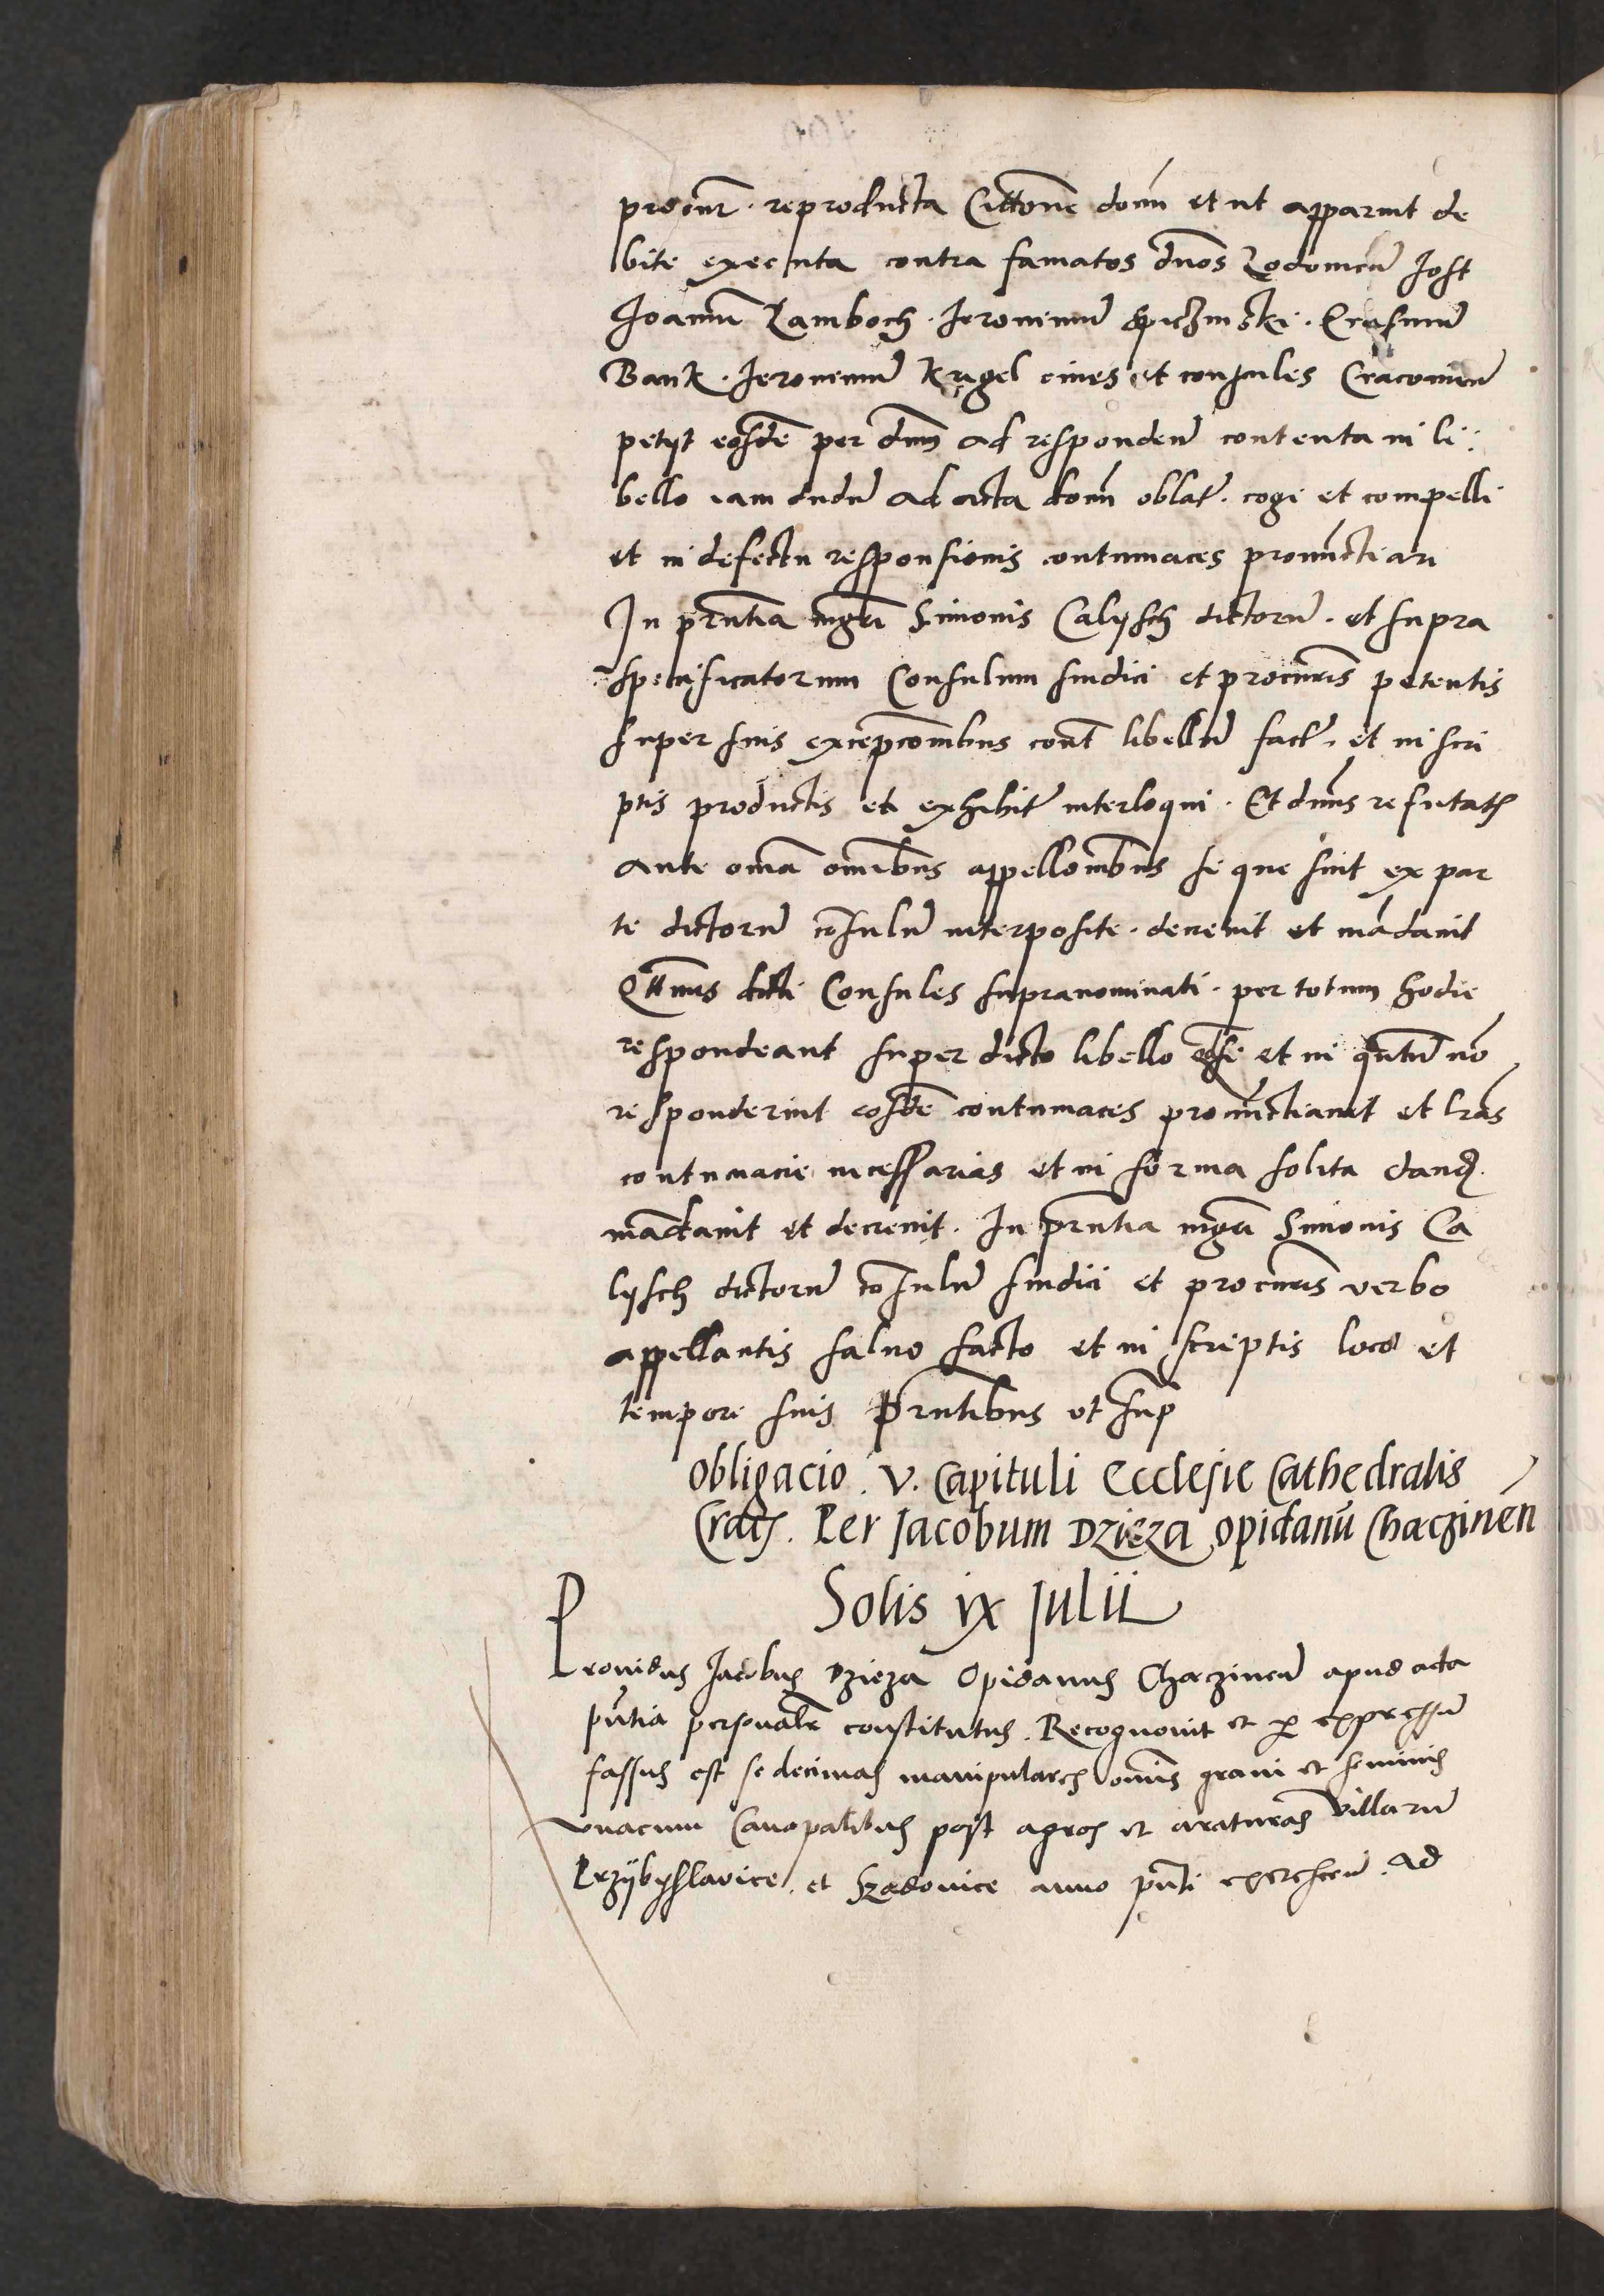 procur. reproducta Cittone domi et ut apparuit de
bite executa contra famatos dnos Lodovicu Jost
Joannu Zamboch. Jeronimu Spiczinski. Erasmu
Bank. Jeronimu Krugel cives et consules Cracovien
petijt eosde per dnm ad responden contenta in li:
bello iam dudu ad acta domi oblat. cogi et compelli
et in defectu responsionis contumaces pronuncttiari
In pnntia mgri Simonis Calysch dictoru. et supra
specificatorum Consulum sindici et procuris petentis
super suis excepcombus cont libellu fact. et in scri
ptis productis et exhibit interloqui. Et dnus refutat
ante omia omibus appellombus si que sint ex par
te dictoru cosulu interposite. decrevit et madavit
Qttnus dicti Consules supranominati. per totum hodie
respondeant super dicto libello et in quntu no
responderint eosde contumaces pronuncttiavit et lras
contumacie necessarias et in forma solita dand.
mandavit et decrevit. In pnntia mgri Simonis Ca
lysch dictoru cosulu sindici et procuris verbo
appellantis salvo facto et in scriptis loco et
tempore suis Pnntibus ut sup
Obligacio. V. Capituli Ecclesie Cathedralis
Crac. Per Jacobum Dzieza opidanu Chaczinen
Solis ix Julii
Providus Jacobus Dzieza Opidanus Chaczincen apud acta
pntia personalr constitutus. Recognovit et per expressu
fassus est se decimas manipulares omis grani et seminis
unacum Canopalibus post agros et araturas villaru
Przÿbÿslavice. et Szadovice anno pnti exerescen. Ad